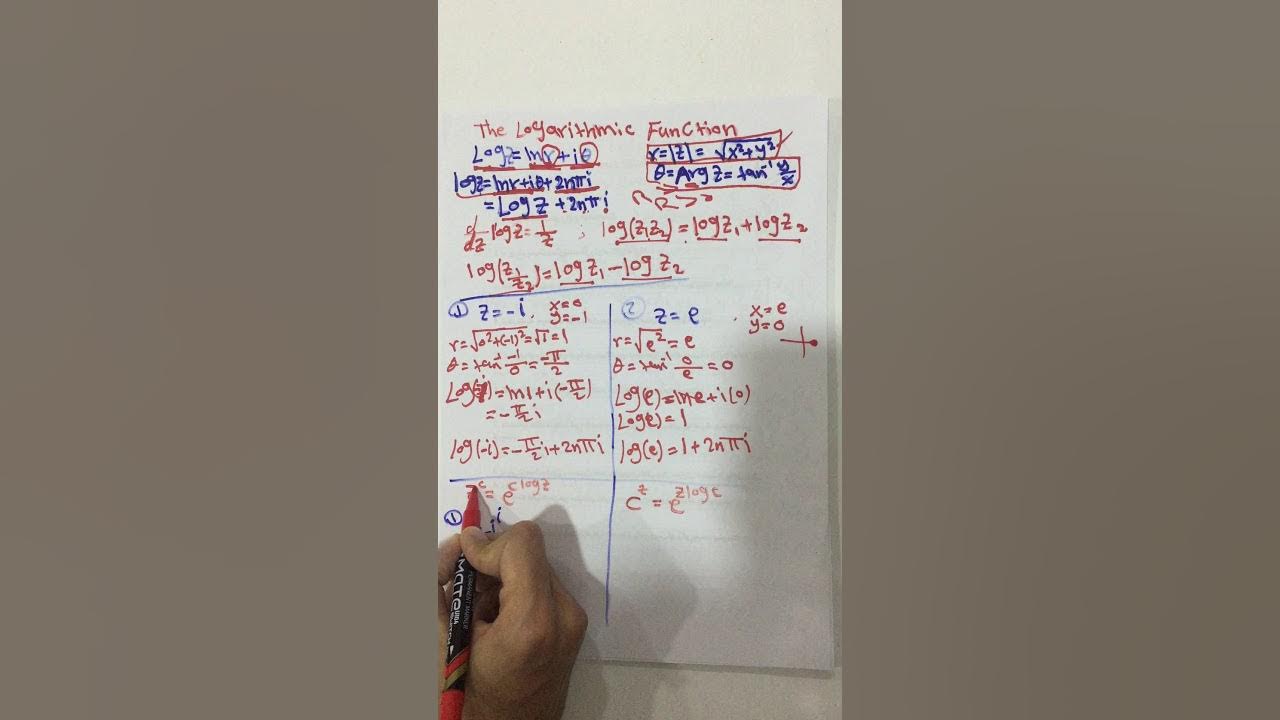 The Logarithmic Function
Log z = ln r + iθ
r = |z| = √(x² + y²)
log z = ln r + iθ + 2nπi
θ = Arg z = tan⁻¹ y/x
= Log z + 2nπi
d/dz log z = 1/z ; log(z₁z₂) = log z₁ + log z₂
log(z₁/z₂) = log z₁ − log z₂
① z = -i . x = 0
y = -1
r = √(0² + (-1)²) = √1 = 1
θ = tan⁻¹ -1/0 = -π/2
Log(-i) = ln 1 + i(-π/2)
= -π/2 i
log(-i) = -π/2 i + 2nπi
② z = e . x = e
y = 0
r = √e² = e
θ = tan⁻¹ 0/e = 0
Log(e) = ln e + i(0)
Log(e) = 1
log(e) = 1 + 2nπi
zᶜ = e^(c log z)
① -i^i
cᶻ = e^(z log c)
PERMANENT MARKER